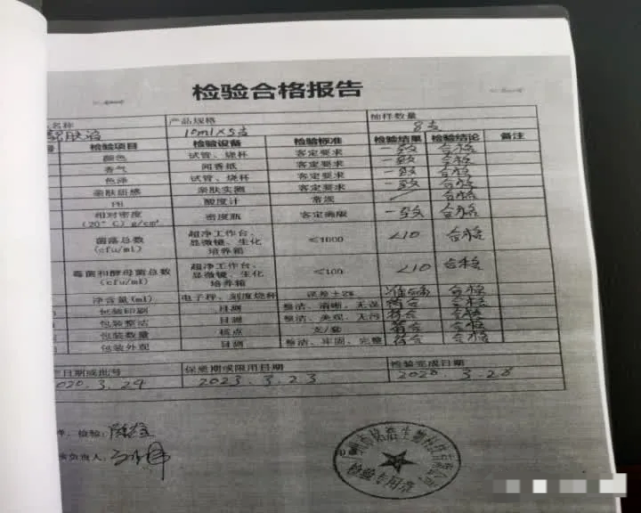 检验合格报告
名称 产品规格 抽样数量
10ml×5支 8支
检验项目 检验设备 检验标准 检验结果 检验结论 备注
颜色 试管、烧杯 客定要求 一致 合格
香气 闻香纸 客定要求 一致 合格
色泽 试管、烧杯 客定要求 一致 合格
亲肤质感 亲肤实测 客定要求 一致 合格
PH 酸度计 合格
相对密度 密度瓶 一致 合格
(20°C) g/cm³
菌落总数 超净工作台、 ≤1000 <10 合格
(cfu/ml) 显微镜、生化
培养箱
霉菌和酵母菌总数 超净工作台、 ≤100 <10 合格
(cfu/ml) 显微镜、生化
培养箱
净含量(ml) 电子秤、刻度烧杯 误差±2% 准确 合格
包装印刷 目测 整洁、清晰、无误 符合 合格
包装整洁 目测 整洁、美观、无污 符合 合格
包装数量 核点 支/套 符合 合格
包装外观 目测 整洁、牢固、完整 符合 合格
日期或批号 保质期或限用日期 检验完成日期
2020.3.24 2023.3.23 2020.3.28
检验：
负责人：
生物科技有限公司
检验专用章